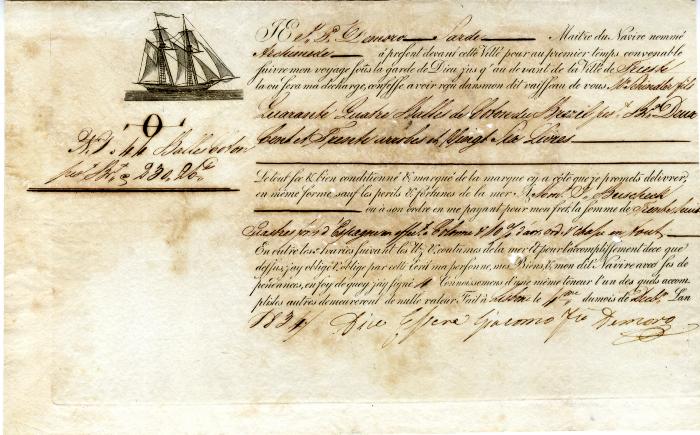 JE J. P. Demoro Sarde Maitre du Navire nommé
Archimede à présent devant cette Ville pour au premier temps convenable
suivre mon voyage soûs la garde de Dieu, jus qu'au devant de la Ville de Trieste
la ou sera ma décharge, confesse avoir reçu dans mon dit vaisseau de vous
Quarante Quatre Balles de Coton du Brezil
Cent et Trente arobes et Vingt Six Livres
No. 44 Balles coton
230,,26
Le tout sec & bien conditionné & marqué de la marque cy a côte que je promets delivrer,
en même forme, sauf les perils & fortunes de la mer A
ou à son ordre en me payant pour mon fret, la somme de
En outre les avaries suivant les Us & coutumes de la mer & pour l'accomplissement de ce que
dessus, j'ay obligé & oblige par cette Ecrit ma personne, mes Biens, & mon dit Navire avec ses de
pendances, en foy de quoy j'ay signé 4 Connoissemens d'une même teneur l'un des quels accom
plis les autres demeureront de nulle valeur Fait à Lisbonne le du mois de L'an
183 Dico Essere Giacomo Demoro